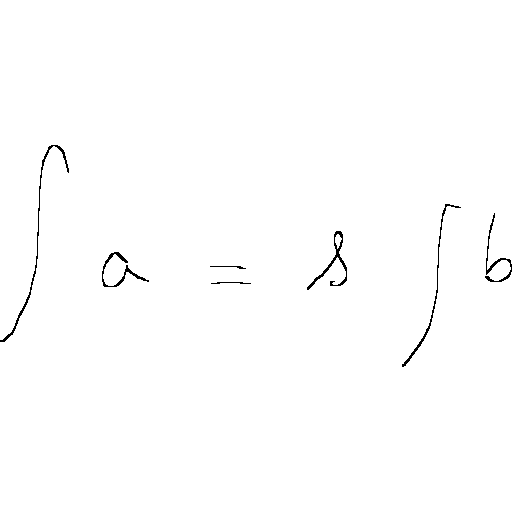 ∫ a = s ∫ b